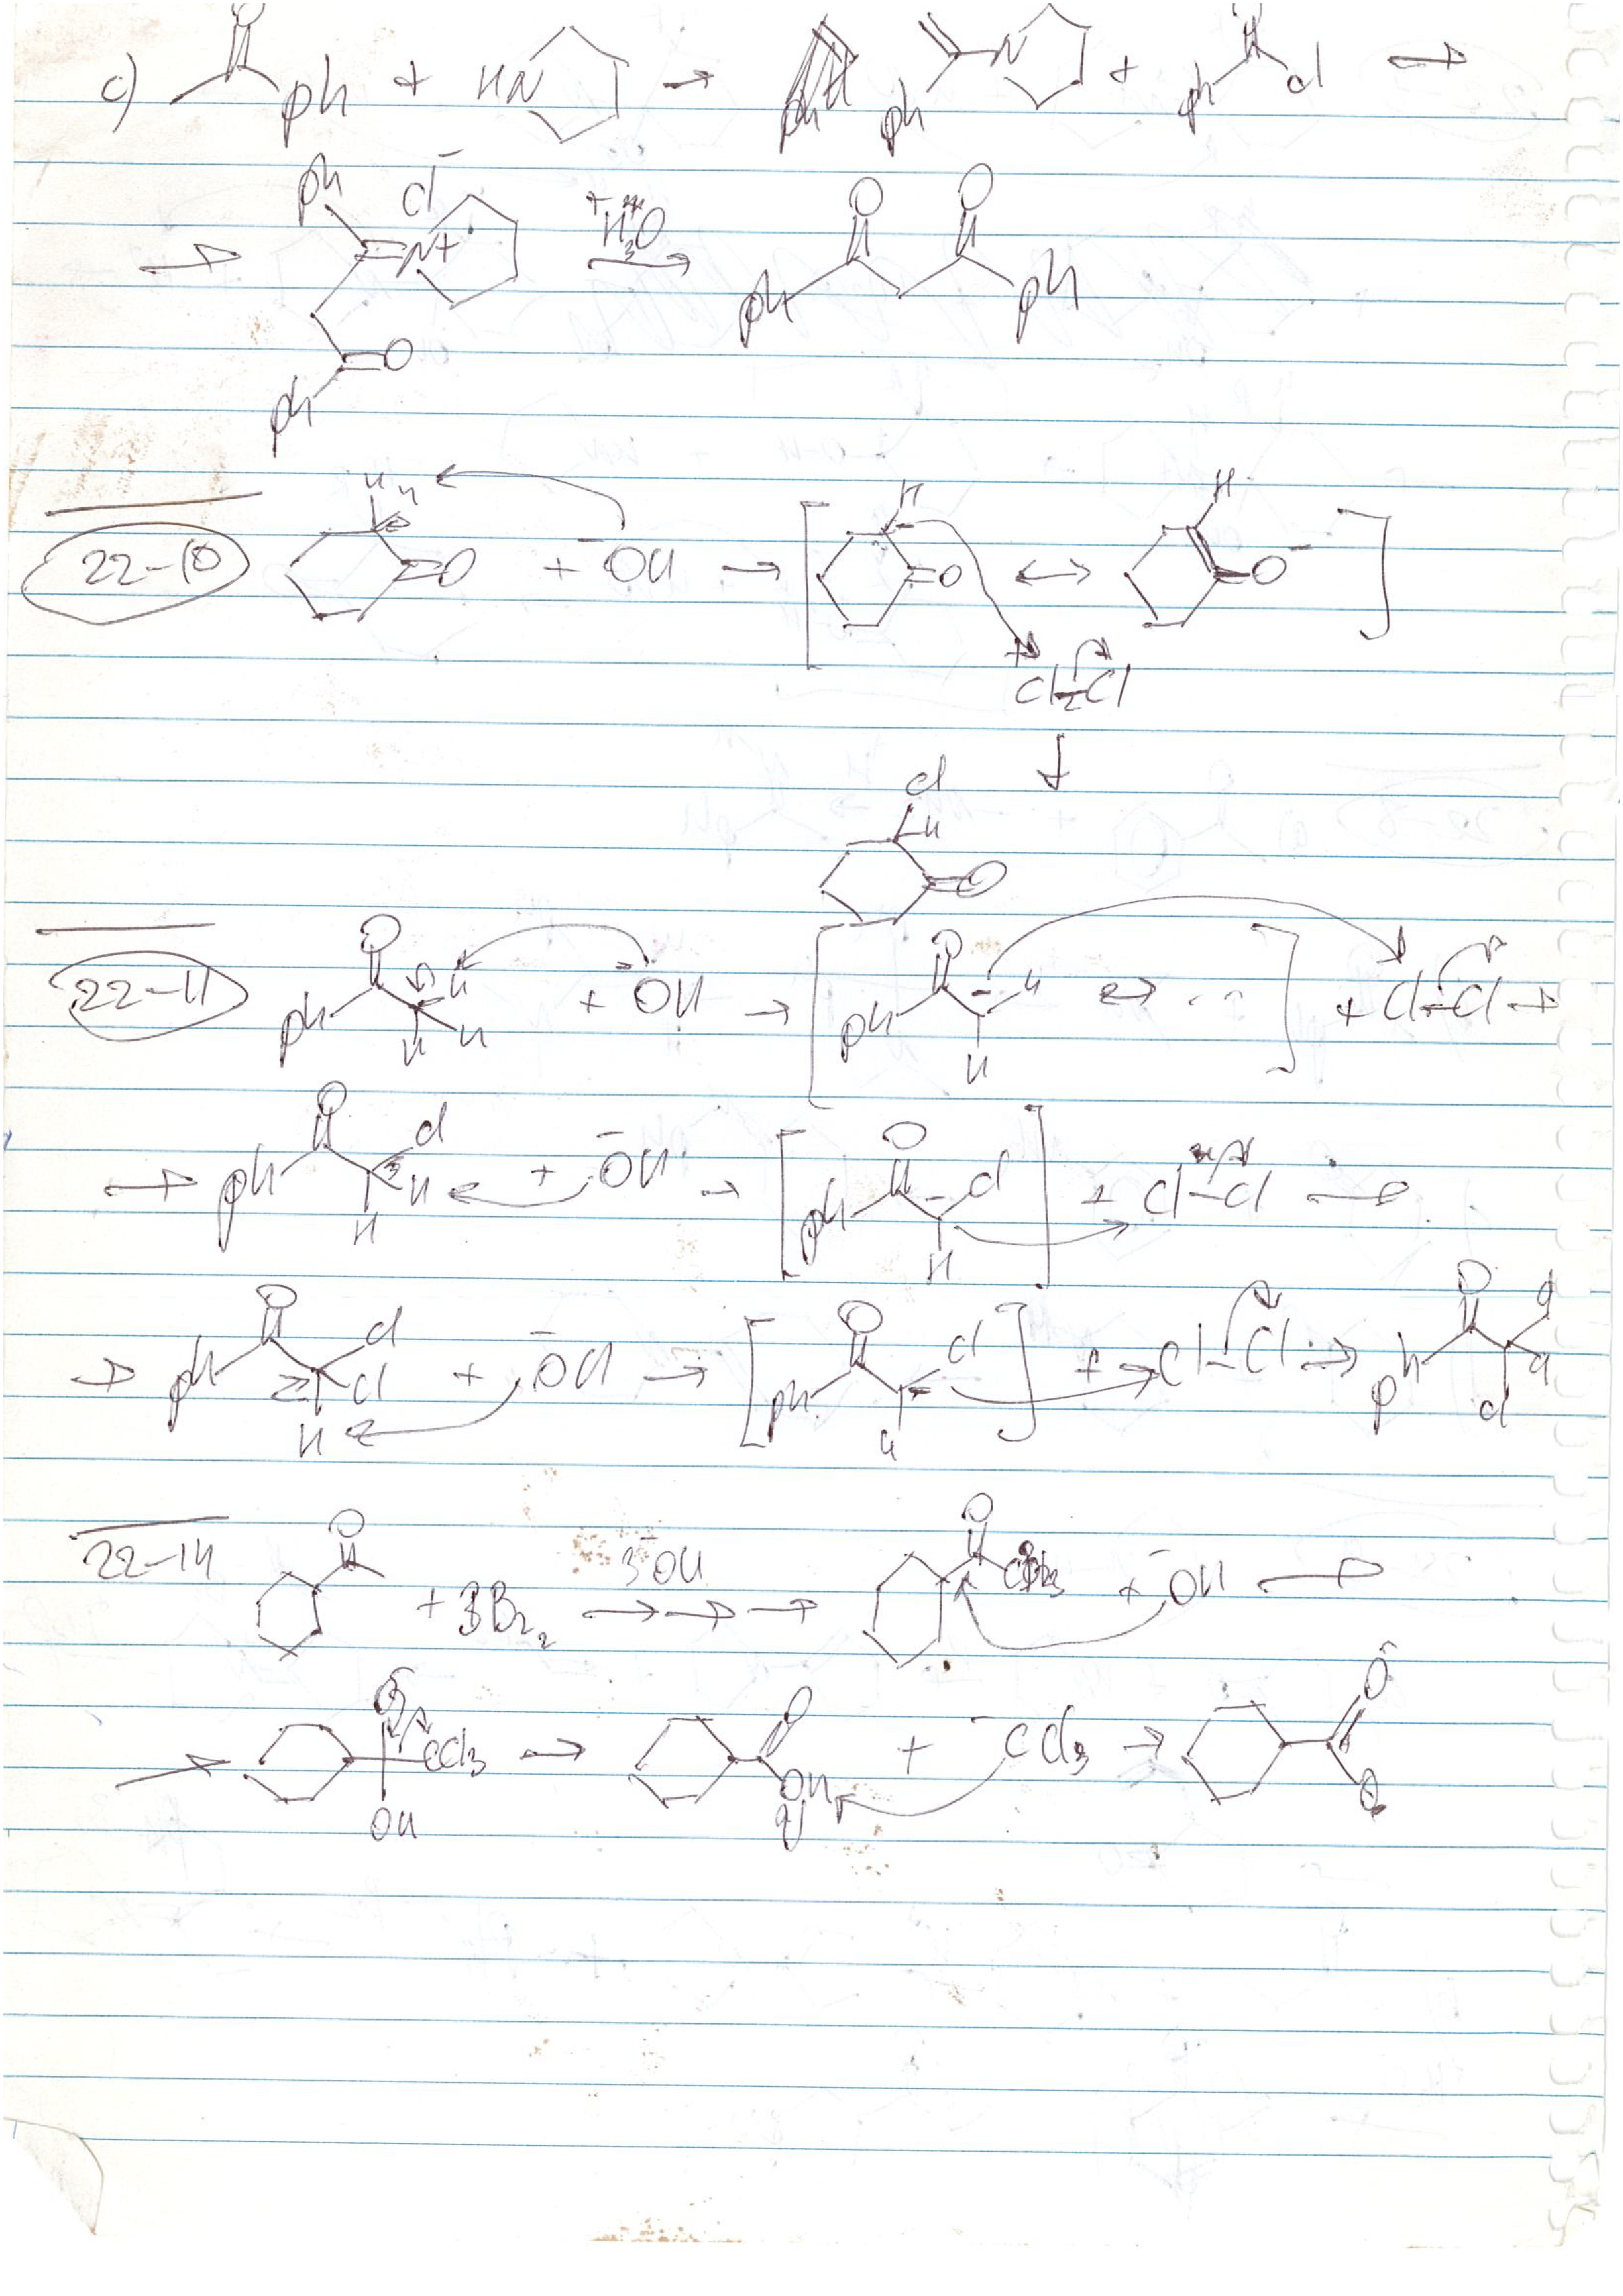 c) O Ph + HN → Ph N + O Ph Cl →
→ Ph Cl⁻ N+ O Ph H₃O⁺ → O O Ph Ph
22-10 H H O + ⁻OH → [ H - O ↔ H O⁻ ]
Cl-Cl
↓
Cl H O
22-11 O Ph H H H + ⁻OH → [ O Ph - H H ↔ ... ] + Cl-Cl →
→ O Ph Cl H H + ⁻OH → [ O Ph - Cl H ] + Cl-Cl →
→ O Ph Cl Cl H + ⁻OH → [ O Ph Cl - Cl ] + Cl-Cl → O Ph Cl Cl Cl
22-14 O + 3Br₂ 3⁻OH →→→ O + ⁻OH →
→ O CCl3 OH → O OH + ⁻CCl3 → O O